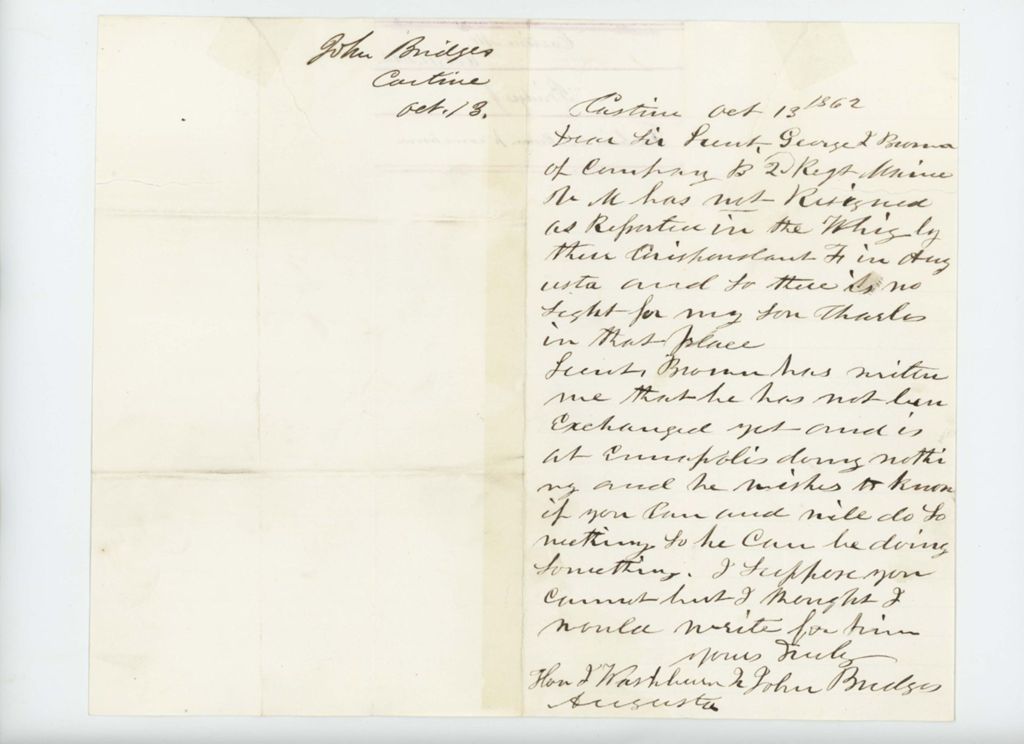 John Bridges
Castine
Oct. 13.
Castine Oct 13 1862
Dear Sir Lieut. George I Brown
of Company B 2d Regt Maine
has not Resigned
as Reported in the Whig by
their Corispondant F in Aug
usta and so there is no
sight for my son Charles
in that place
Lieut. Brown has writen
me that he has not ben
Exchanged yet and is
at Annapolis doing nothi
ng and he wishes to know
if you Can and will do So
mething so he Can be doing
Something. I Suppose you
cannot but I thought I
would write for him
yours Truly
Hon I Washburn Jr John Bridges
Augusta